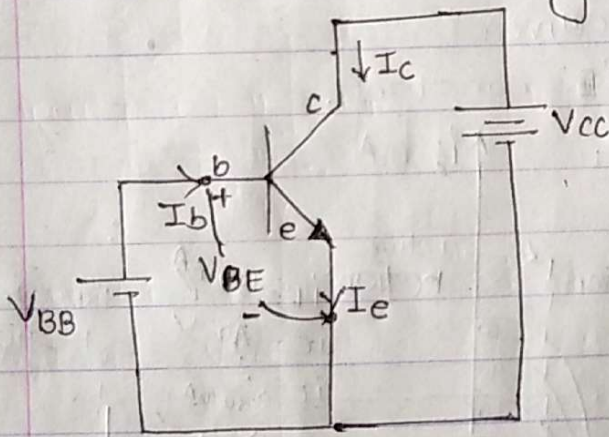 Ic
c
VCC
b
Ib
+
e
VBE
-
Ie
VBB